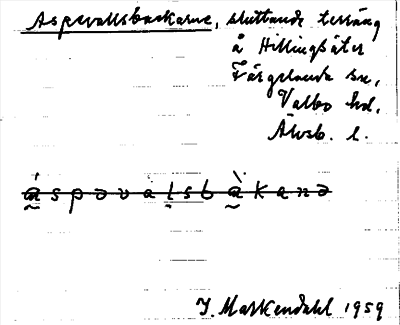 Aspevallsbackarne, sluttande terräng
å Hillingsäter
Färgelanda sn,
Valbo hd,
Älvsb. l.
a̰spəvalsba̰kanə
J. Markendahl 1959